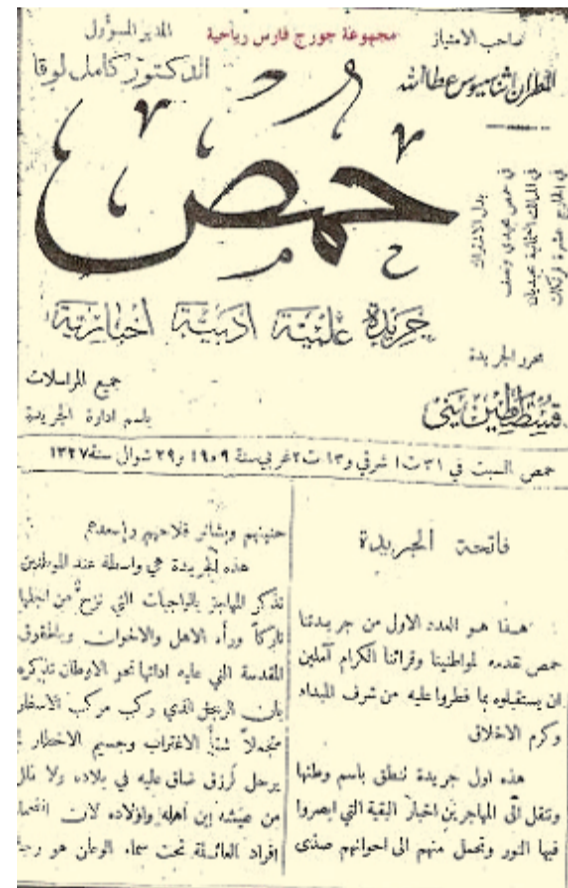 صاحب الامتياز
المطران اثناسيوس عطاالله
مجموعة جورج فارس رباحية
المدير المسؤول
الدكتور كامل لوقا
حمص
بدل الاشتراك
في حمص مجيدي ونصف
في الممالك العثمانية مجيديان
في الخارج عشرة فرنكات
جريدة علمية ادبية اخبارية
محرر الجريدة
قسطنطين يني
جميع المراسلات
باسم ادارة الجريدة
حمص السبت في ٣١ ت١ شرقي و١٣ ت٢ غربي سنة ١٩٠٩ و٢٩ شوال سنة ١٣٢٧
فاتحة الجريدة
هذا هو العدد الاول من جريدتنا
حمص نقدمه لمواطنينا وقرائنا الكرام آملين
ان يستقبلوه بما فطروا عليه من شرف المبداء
وكرم الاخلاق
هذه اول جريدة تنطق باسم وطنها
وتنقل الى المهاجرين اخبار البقية التي ابصروا
فيها النور وتحمل منهم الى اخوانهم صدى
حنينهم وبشائر فلاحهم
هذه الجريدة هي واسطة عند المواطنين
تذكر المهاجر بالواجبات التي نزح من اجلها
تاركاً وراء الاهل والاخوان وبالحقوق
المقدسة التي عليه ادائها نحو الاوطان تذكره
بان الرجل الذي ركب مركب الاسفار
متحملاً الاغتراب وجسيم الاخطار
يرحل لرزق ضاق عليه في بلاده ولا
من اهله واولاده لان
افراد العائلة تحت سماء الوطن هو